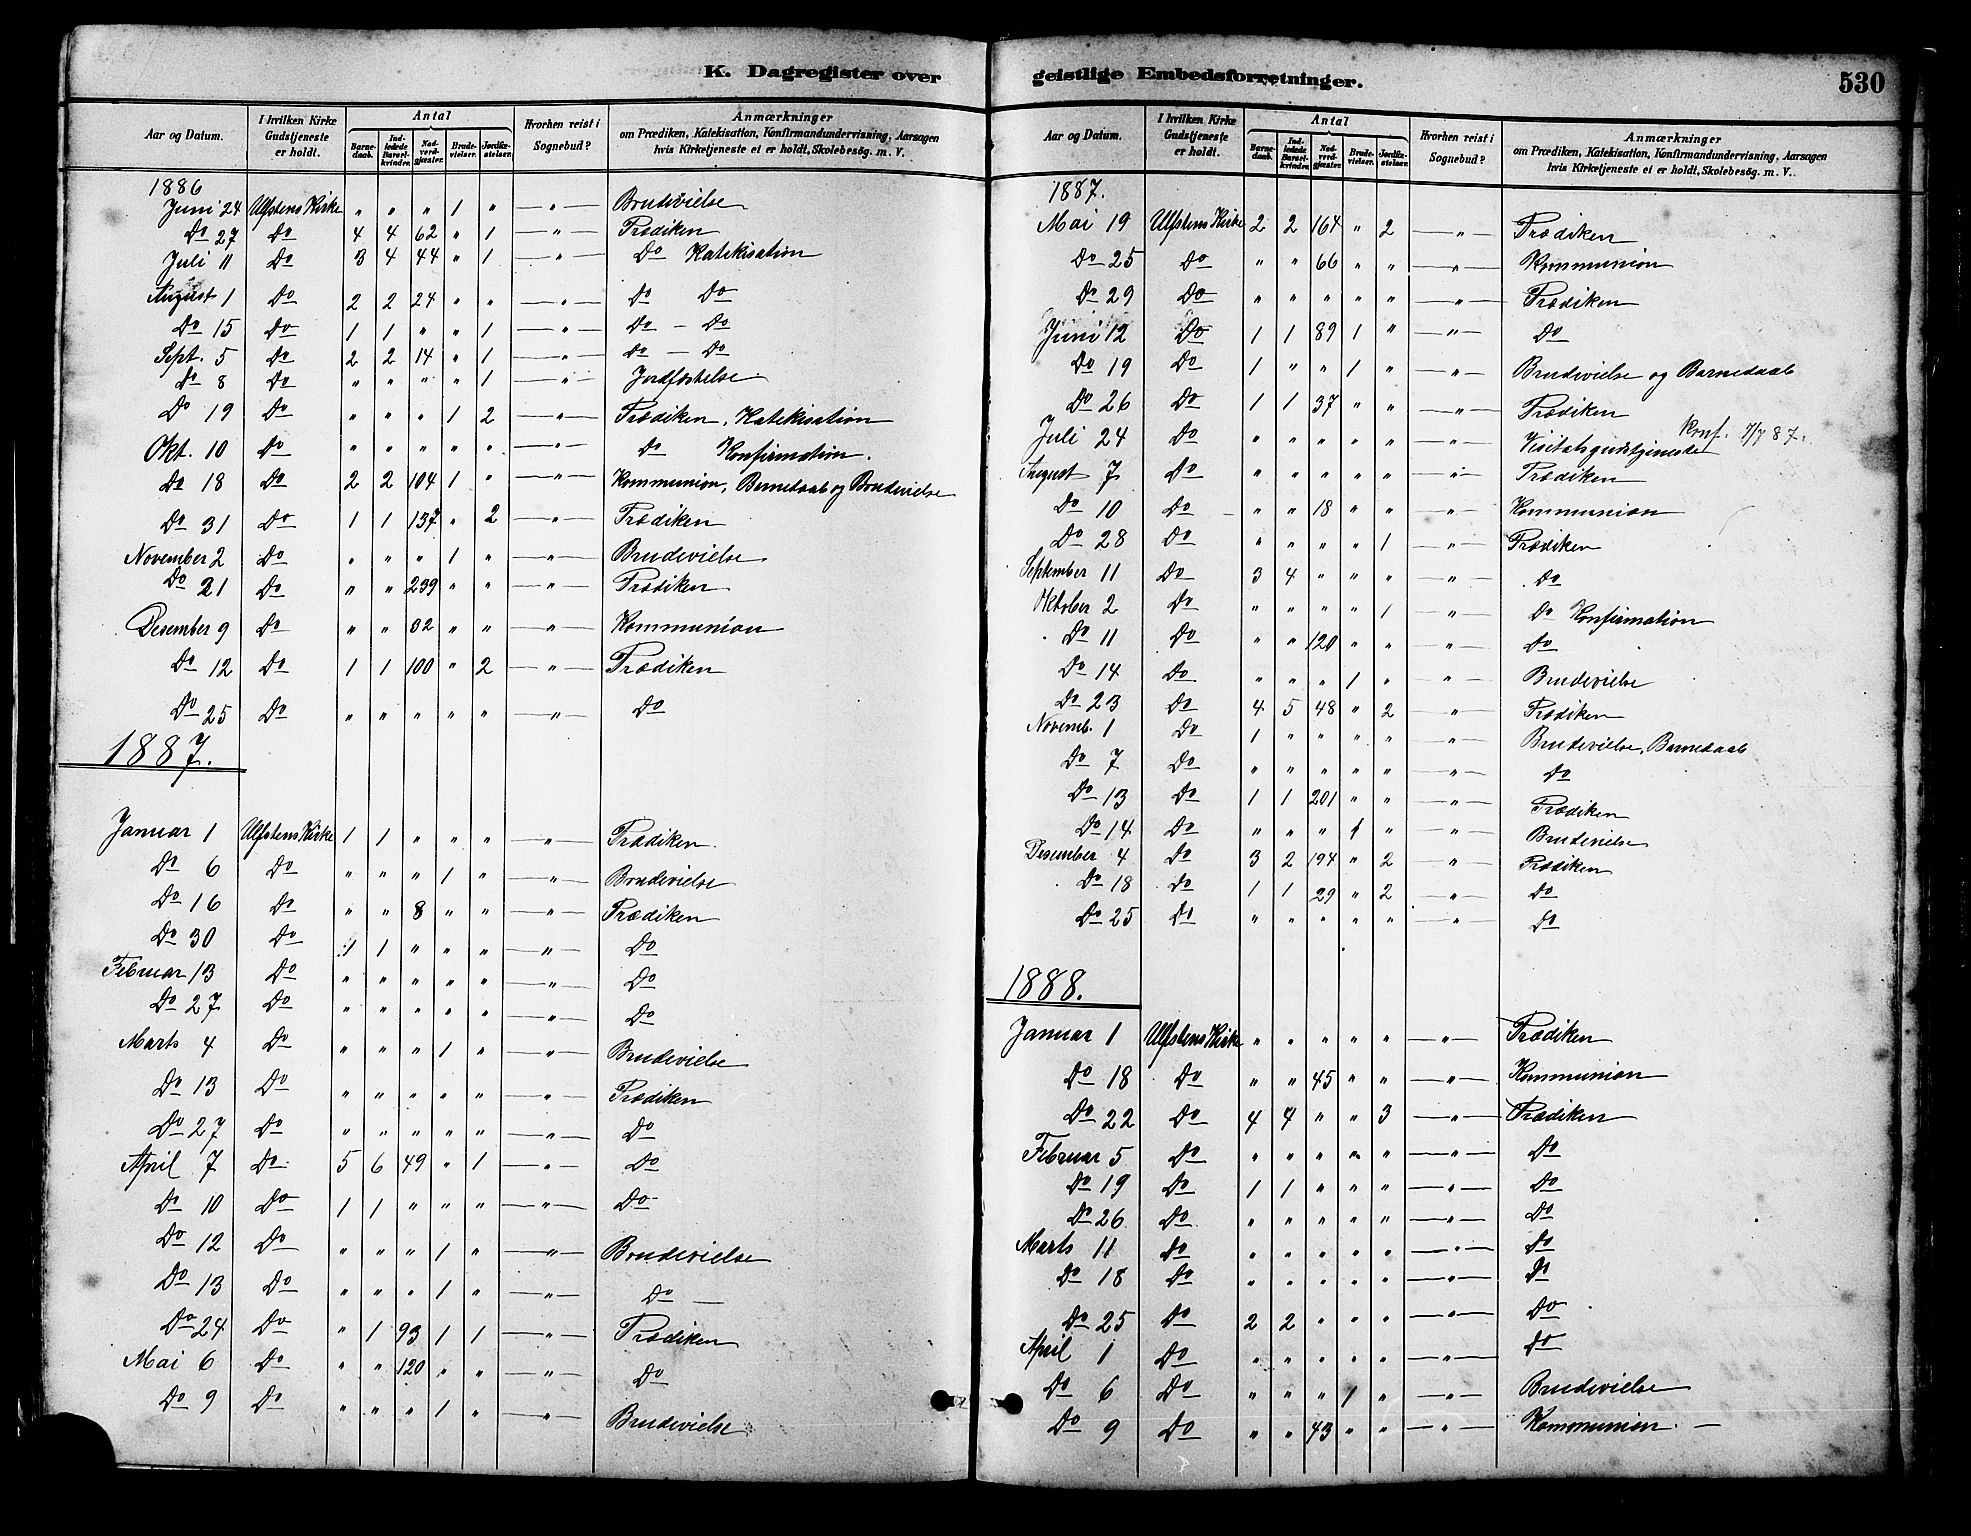 K. Dagregister over
Aar og Datum. | I hvilken Kirke Gudstjeneste er holdt. | Antal | Barnedaab. | Indledede Barselkvinder. | Nadverdgjæster. | Brudevielser. | Jordfæstelser. | Hvorhen reist i Sognebud? | Anmærkninger om Prædiken, Katekisation, Konfirmandundervisning, Aarsagen hvis Kirketjeneste ei er holdt, Skolebesøg. m. V.
1886
Juni 24 Ulfstens Kirke " " " 1 " — " — Brudevielse
Do 27 Do 4 4 62 " 1 — " — Prædiken
Juli 11 Do 3 4 44 " 1 — " — Do Katekisation
August 1 Do 2 2 24 " " — " — Do Do
Do 15 Do 1 1 " " 1 — " — Do — Do
Sept. 5 Do 2 2 14 " 1 — " — Do — Do
Do 8 Do " " " " 1 — " — Jordfæstelse
Do 19 Do " " " 1 2 — " — Prædiken, Katekisation
Okt. 10 Do " " " " " — " — Do Konfirmation.
Do 18 Do 2 2 104 1 " — " — Kommunion, Barnedaab og Brudevielse
Do 31 Do 1 1 137 " 2 — " — Prædiken
November 2 Do " " " 1 " — " — Brudevielse
Do 21 Do " " 239 " " — " — Prædiken
Desember 9 Do " " 32 " " — " — Kommunion
Do 12 Do 1 1 100 " 2 — " — Prædiken
Do 25 Do " " " " " — " — Do
1887.
Januar 1 Ulfstens Kirke 1 1 " " " — " — Prædiken.
Do 6 Do " " " 1 " — " — Brudevielse
Do 16 Do " " 8 " " — " — Prædiken
Do 30 Do 1 1 " " " — " — Do
Februar 13 Do " " " " " — " — Do
Do 27 Do " " " " " — " — Do
Marts 4 Do " " " 1 " — " — Brudevielse
Do 13 Do " " " " " — " — Prædiken
Do 27 Do " " " " " — " — Do
April 7 Do 5 6 49 " 1 — " — Do
Do 10 Do 1 1 " " " — " — Do
Do 12 Do " " " 1 " — " — Brudevielse
Do 13 Do " " " 1 " — " — Do —
Do 24 Do " 1 93 1 1 — " — Prædiken
Mai 6 Do " " 120 " " — " — Do
Do 9 Do " " " 1 " — " — Brudevielse
geistlige Embedsforretninger. 530
Aar og Datum. | I hvilken Kirke Gudstjeneste er holdt. | Antal | Barnedaab. | Indledede Barselkvinder. | Nadverdgjæster. | Brudevielser. | Jordfæstelser. | Hvorhen reist i Sognebud? | Anmærkninger om Prædiken, Katekisation, Konfirmandundervisning, Aarsagen hvis Kirketjeneste ei er holdt, Skolebesøg. m. V.
1887.
Mai 19 Ulfstens Kirke 2 2 164 " 2 — " — Prædiken
Do 25 Do " " 66 " " — " — Kommunion
Do 29 Do " " " " " — " — Prædiken
Juni 12 Do 1 1 89 1 " — " — Do
Do 19 Do 1 " " 1 " — " — Brudevielse og Barnedaab
Do 26 Do 1 1 37 " " — " — Prædiken
Konf. 7/7 87.
Juli 24 Do " " " " " — " — Visitatsgudstjeneste
August 7 Do " " " " " — " — Prædiken
Do 10 Do " " 18 " " — " — Kommunion
Do 28 Do " " " " 1 — " — Prædiken
September 11 Do 3 4 " " " — " — Do
Oktober 2 Do " " " " 1 — " — Do Konfirmation
Do 11 Do " " 120 " " — " — Do
Do 14 Do " " " 1 " — " — Brudevielse
Do 23 Do 4 5 48 " 2 — " — Prædiken
Novemb. 1 Do 1 " " " " — " — Brudevielse, Barnedaab
Do 7 Do " " " " " — " — Do
Do 13 Do 1 1 201 " " — " — Prædiken
Do 14 Do " " " 1 " — " — Brudevielse
Desember 4 Do 3 2 194 " 2 — " — Prædiken
Do 18 Do 1 1 29 " 2 — " — Do
Do 25 Do " " " " " — " — Do
1888.
Januar 1 Ulfstens Kirke " " " " " — " — Prædiken
Do 18 Do " " 45 " " — " — Kommunion
Do 22 Do 4 4 " " 3 — " — Prædiken
Februar 5 Do " " " " " — " — Do
Do 19 Do 1 1 " " " — " — Do
Do 26 Do " " " " " — " — Do
Marts 11 Do " " " " " — " — Do
Do 18 Do " " " " " — " — Do
Do 25 Do 2 2 " " " — " — Do
April 1 Do " " " " " — " — Do
Do 6 Do " " " 1 " — " — Brudevielse
Do 9 Do " " 43 " " — " — Kommunion. —